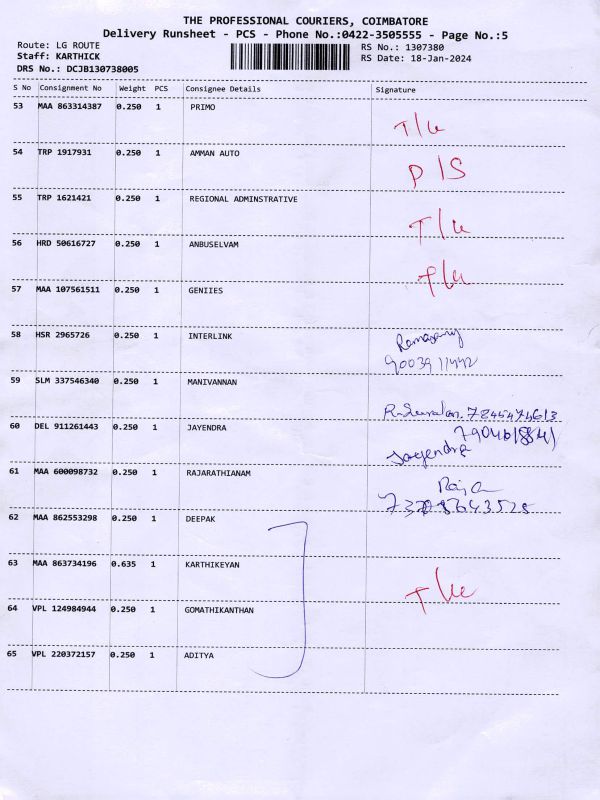 THE PROFESSIONAL COURIERS, COIMBATORE
Delivery Runsheet - PCS - Phone No.:0422-3505555 - Page No.:5
Route: LG ROUTE
RS No.: 1307380
Staff: KARTHICK
RS Date: 18-Jan-2024
DRS No.: DCJB130738005
S No Consignment No Weight PCS Consignee Details Signature
53 MAA 863314387 0.250 1 PRIMO
T/L
54 TRP 1917931 0.250 1 AMMAN AUTO
P/S
55 TRP 1621421 0.250 1 REGIONAL ADMINSTRATIVE
T/L
56 HRD 50616727 0.250 1 ANBUSELVAM
T/L
57 MAA 107561511 0.250 1 GENIIES
58 HSR 2965726 0.250 1 INTERLINK
Ramasamy
9003911442
59 SLM 337546340 0.250 1 MANIVANNAN
60 DEL 911261443 0.250 1 JAYENDRA
Jayendra
61 MAA 600098732 0.250 1 RAJARATHIANAM
Raja
62 MAA 862553298 0.250 1 DEEPAK
63 MAA 863734196 0.635 1 KARTHIKEYAN
T/L
64 VPL 124984944 0.250 1 GOMATHIKANTHAN
65 VPL 220372157 0.250 1 ADITYA